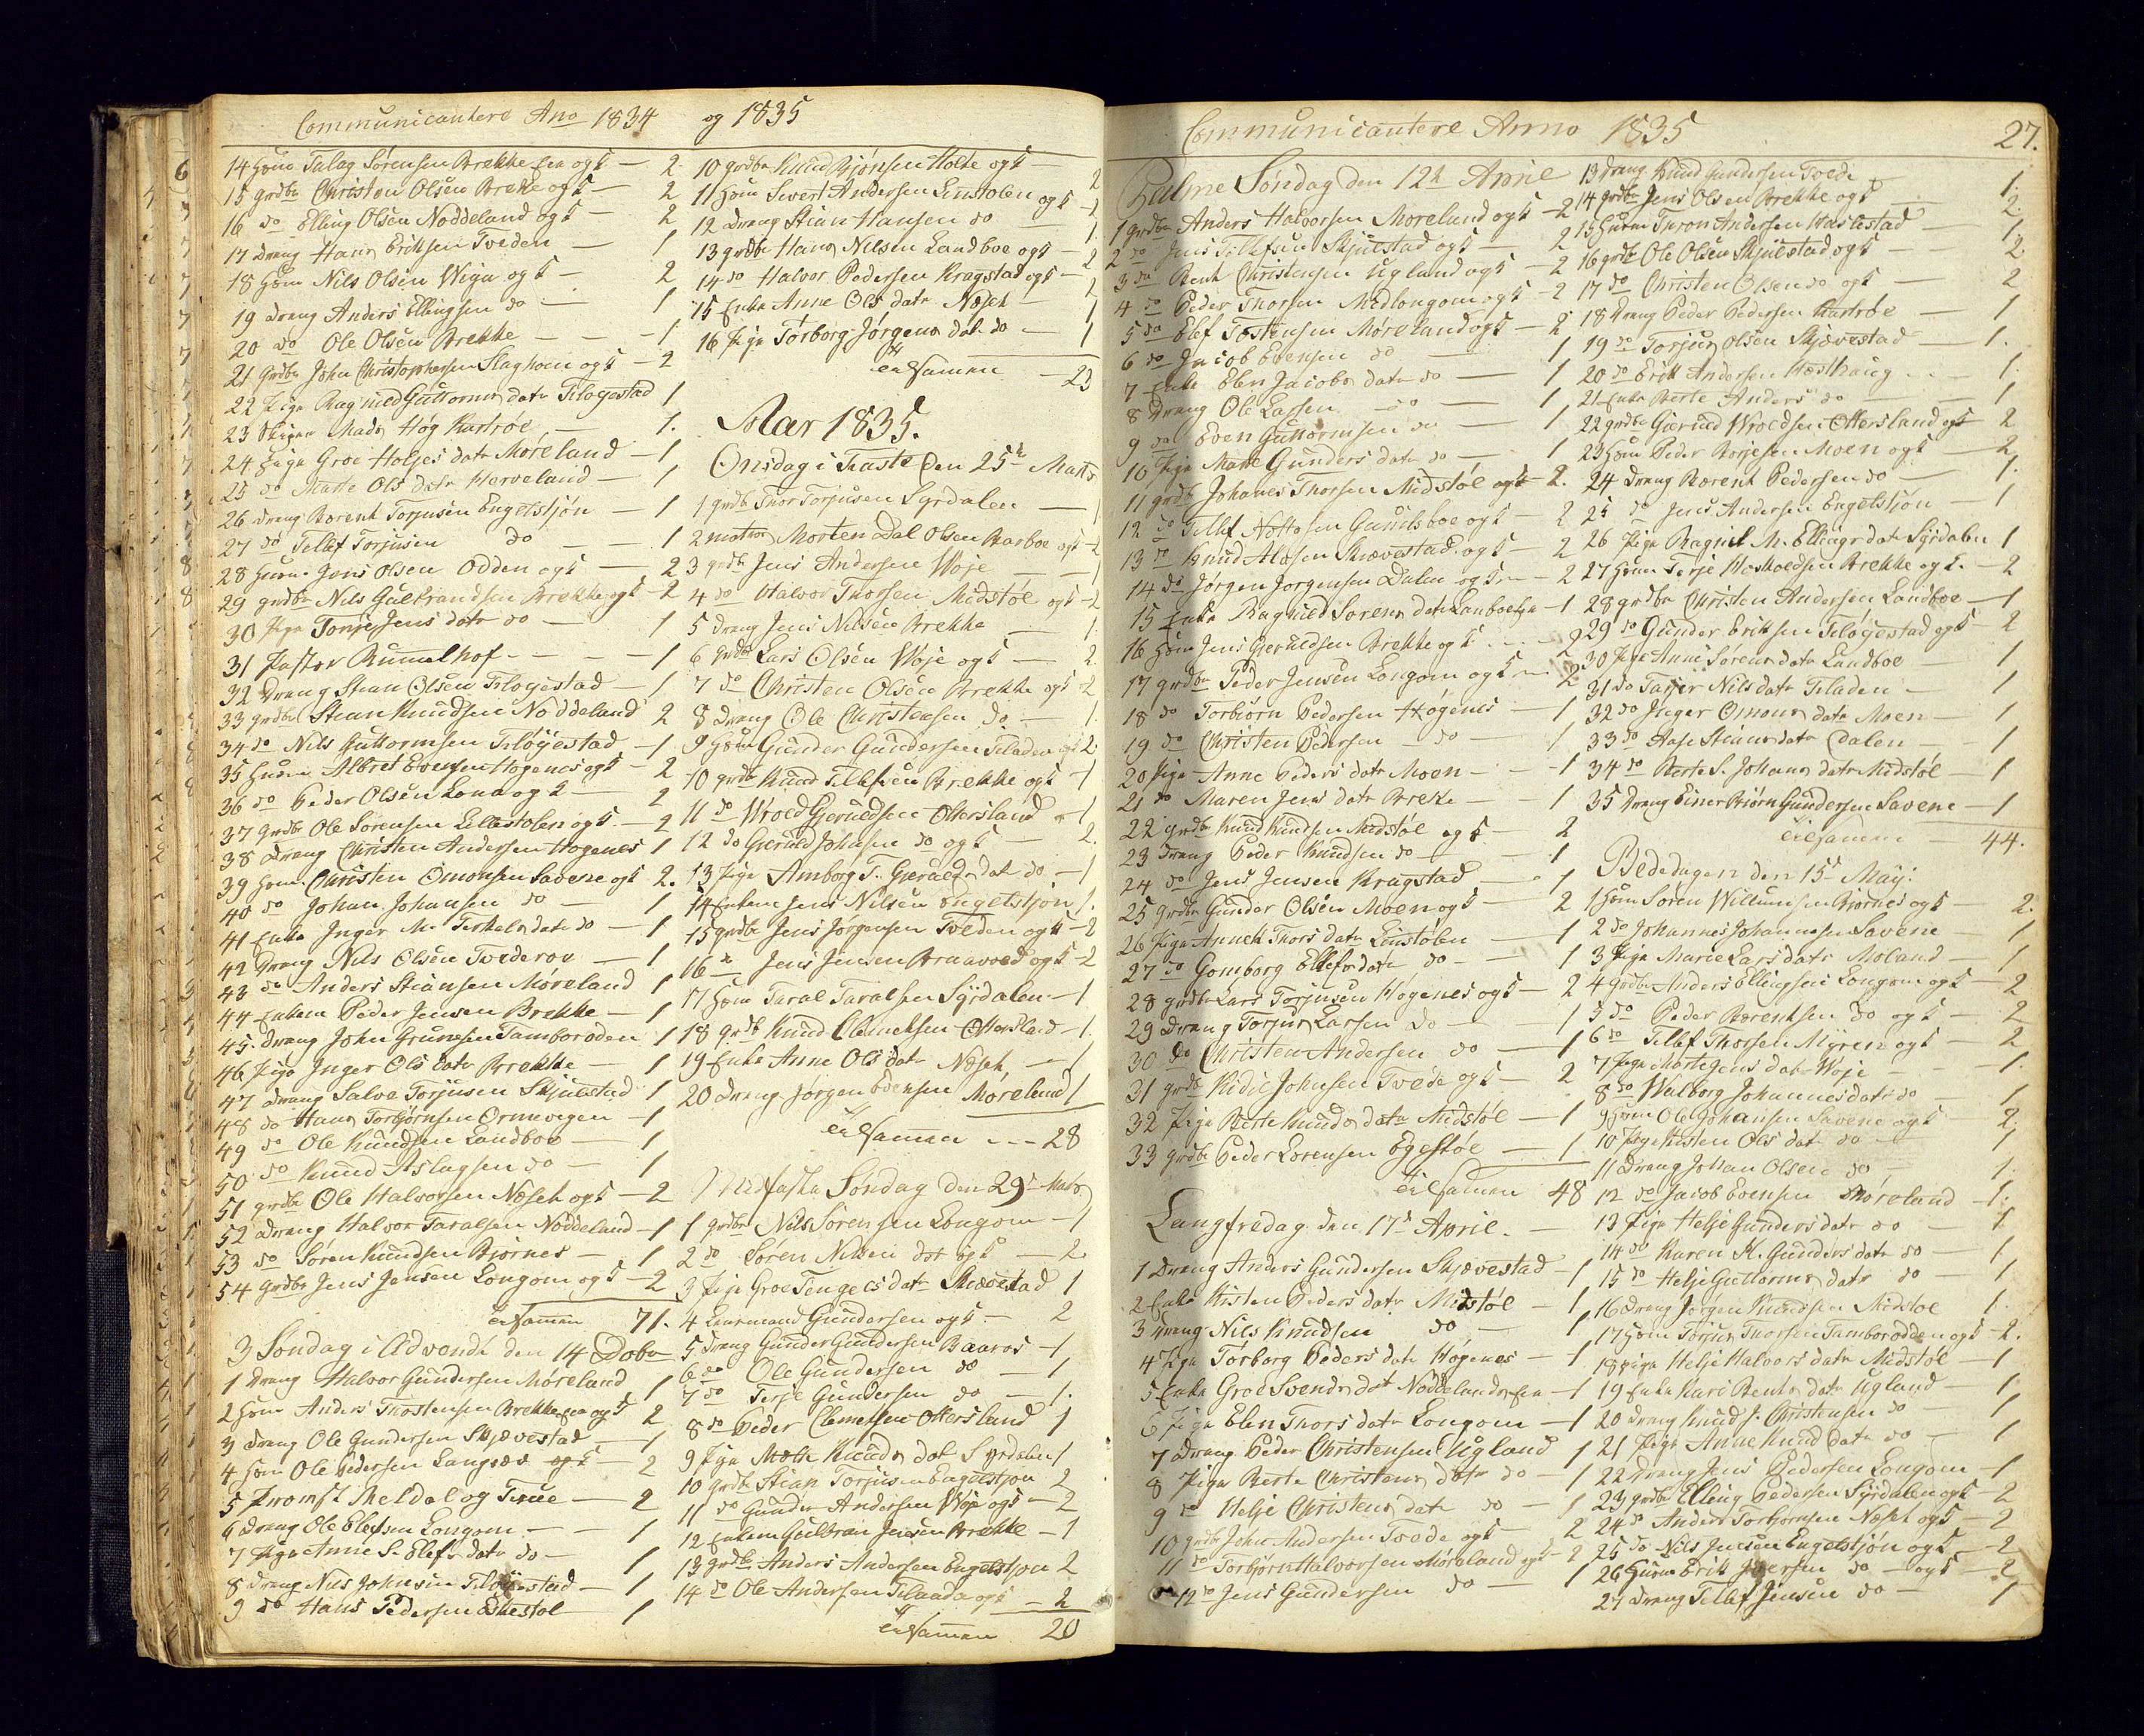 Communicantere Ano 1834 og 1835
14 Huusm Talag Sørensen Brekke Eva og K — 2
15 grdbr Christen Olsen Breke og K — 2
16 do Elling Olsen Noddeland og K — 2
17 Drang Hans Eriksen Tveden — 1
18 Huusm Nils Olsen Wiga og K — 2
19 Drang Anders Ellingsen do — 1
20 do Ole Olsen Brekke — 1
21 Grdbr John Christophersen Slaghom og K — 2
22 Pige Ragnild Guttorms datr Tiløgestad 1
23 Mads Høg Kartrøe — 1.
24 Pige Groe Holjes datr Møreland — 1
25 do Marte Ols datr Herveland — 1
26 Drang Barent Torjusen Engelstjøn — 1
27 do Tellef Torjusen do — 1
28 Huusm Jens Olsen Odden og K — 2
29 grdbr Nils Gulbrandsen Brekke og K — 2
30 Pige Tonje Jens datr do — 1
31 Pastor Rummelhof — 1
32 Drang Stian Olsen Tiløgestad — 1
33 grdbr Stian Knudsen Noddeland 2
34 do Nils Guttormsen Tiløgestad — 1
35 Huusm Albret Evensen Høgenes og K — 2
36 do Peder Olsen Lona og K — 2
37 grdbr Ole Sørensen Lillestolen og K — 2
38 Drang Christen Andersen Høgenes 1
39 Huusm Christen Omonsen Savene og K 2.
40 do Johan Johansen do — 1
41 Enke Inger M. Terkels datr do — 1
42 Drang Nils Olsen Tvederøe — 1
43 do Anders Stiansen Møreland 1
44 Enkem Peder Jensen Brekke — 1
45 Drang John Grunesen Tamborøden 1
46 Pige Inger Ols datr Brekke — 1
47 Drang Salve Torjusen Skjulestad 1
48 do Hans Torbjørnsen Ormevigen — 1
49 do Ole Knudsen Landboe — 1
50 do Knud Aslagsen do — 1
51 grdbr Ole Halvorsen Næset og K — 2
52 Drang Halvor Taralsen Noddeland — 1
53 do Søren Knudsen Bjørnes — 1
54 Grdbr Jens Jensen Longom og K — 2
tilsamen 71.
3 Søndag i Advendt den 14 Dcbr
1 Drang Halvor Gundersen Møreland 1
2 Huusm Anders Thostensen Brekke Eva og K 2
3 Drang Ole Gundersen Skjævestad — 1
4 Huusm Ole Pedersen Langsæe og K — 2
5 Prowst Meldal og Frue — 2
6 Drang Ole Elefsen Longom — 1
7 Pige Anne S. Elefs datr do — 1
8 Drang Nils Johnsen Tiløgestad — 1
9 do Hans Pedersen Eikestøl — 1
10 grdbr Knud Bjønsen Holte og K — 2
11 Huusm Sivert Andersen Linstolen og K — 2
12 Drang Stian Hansen do — 1
13 grdbr Hans Nilsen Landboe og K — 2
14 do Halvor Pedersen Kragstad og K — 2
15 Enke Anne Ols datr Næset — 1
16 Pige Torborg Jørgens dat do — 1
tilsamen — 23
Aar 1835.
Onsdag i Faste den 25de Marts
1 grdb Thor Torjusen Syrdalen — 1
2 Morten Dal Olsen Barboe og K — 2
3 grdb Jens Andersen Woje — 1
4 do Halvor Thorsen Midstøl og K — 2
5 Drang Jens Nilsen Brekke — 1
6 Grdbr Lars Olsen Woje og K — 2
7 do Christen Olsen Brekke og K — 2
8 Drang Ole Christensen do — 1
9 Huusm Gunder Gundersen Tiladen og K 2.
10 grdbr Knud Tellefsen Brekke og K — 1
11 do Wroed Gjerulfsen Ottersland — 1
12 do Gierulf Johnsen do og K — 2.
13 Pige Amborg T. Gjerulfs dat do — 1
14 Enkem Jens Nilsen Engelstjøn 1.
15 grdbr Jens Jørgensen Tveden og K — 2
16 do Jens Jensen Braavoed og K — 2
17 Huusm Taral Taralsen Syrdalen — 1
18 grdb Knud Clemetsen Ottersland — 1.
19 Enke Anne Ols dat Næset — 1
20 Drang Jørgen Evensen Møreland 1
tilsamen — 28
Midfaste Søndag den 29de Marts
1 grdbr Nils Sørensen Longom — 1
2 do Søren Nilsen do og K — 2
3 Pige Groe Tengels datr Skiævestad 1
4 Leuemand Gundersen og K — 2
5 Drang Gunder Gundersen Baaros — 1
6 do Ole Gundersen do — 1
7 do Terje Gundersen do — 1.
8 do Peder Clemetsen Ottersland 1
9 Pige Molte Knuds dat Syrdalen 1
10 grdb Stian Torjusen Engelstjøn 2
11 do Gunder Andersen Woje og K — 2
12 Enkem Gulbran Jensen Brekke — 1
13 grdbr Anders Andersen Engelstjøn 2
14 do Ole Andersen Tilaada og K — 2
tilsamen 20
Communicantere Anno 1835 27.
Palme Søndag den 12te Aprie
1 grdbr Anders Halvorsen Moreland og K — 2
2 do Jens Tellefsen Skjulestad og K — 2
3 do Bent Christensen Ugland og K — 2
4 do Peder Thorsen Midlongom og K — 2
5 do Elef Tostensen Møreland og K — 2
6 do Jacob Evensen do — 1
7 Enke Elen Jacobs datr do — 1
8 Drang Ole Larsen do — 1
9 do Even Guttormsen do — 1
10 Pige Marte Gunders datr do — 1
11 grdb Johanes Thorsen Midstøl og K — 2.
12 do Tellef Nottosen Gunelsboe og K — 2
13 do Knud Alosen Skiævestad og K — 2
14 do Jørgen Jorgensen Dalen og K — 2
15 Enke Ragnild Sorens datr Lanboe Eva — 1
16 Huusm Jens Gierulfsen Brekke og K — 2
17 grdbr Peder Jensen Longom og K — 2
18 do Torbiørn Pedersen Høgenes — 1
19 do Christen Pedersen do — 1
20 Pige Anne Peders datr Moen — 1
21 do Maren Jens datr Breke — 1
22 grdb Knud Knudsen Midstøl og K 2
23 Drang Peder Knudsen do — 1
24 do Jens Jensen Kragstad — 1
25 grdbr Gunder Olsen Moen og K — 2
26 Pige Anneth Thors datr Linstølen — 1
27 do Gomborg Ellefs datr do — 1
28 grdbr Lars Torjusen Høgenes og K — 2
29 Drang Torjus Larsen do — 1
30 do Christen Andersen do — 1
31 grdb Kidil Johnsen Tvede og K — 2
32 Pige Berte Knuds datr Midstøl — 1
33 grdb Peder Lorensen Egestøl — 1.
tilsamen 48
Langfredag den 17de April. —
1 Drang Anders Gundersen Skjævestad — 1
2 Enke Kisten Peders datr Midstøl — 1
3 Drang Nils Knudsen do — 1
4 Pige Torborg Peders datr Høgenes — 1
5 Enke Groe Svends dat Noddeland Eva — 1
6 Pige Elen Thors datr Longom — 1
7 Drang Peder Christensen Ugland 1
8 Pige Berte Christens datr do — 1
9 do Helje Christens datr do — 1
10 grdb John Andersen Tvede og K — 2
11 do Torbjørn Halvorsen Møreland og K — 2
12 do Jens Gundersen do — 1
13 Drang Knud Knudsen Tvede — 1.
14 grdbr Jens Olsen Brekke og K — 2.
15 Huusm Thron Andersen Haslestad — 1.
16 grdb Ole Olsen Skjulestad og K — 2
17 do Christen Olsen do og K — 2
18 Drang Peder Pedersen Kartrøe — 1
19 do Torjus Olsen Skjævestad — 1.
20 do Erik Andersen Hæsthaug — 1
21 Enke Berte Anders do — 1
22 grdbr Gierulf Wroldsen Ottersland og K 2
23 Huusm Peder Børjesen Moen og K — 2
24 Drang Barent Pedersen do — 1.
25 do Jens Andersen Engelstjøn — 1
26 Pige Ragnil M. Ellings dat Syrdalen 1
27 Huusm Terje Hoskoldsen Brekke og K. — 2
28 grdbr Christen Andersen Landboe — 1
29 do Gunder Eriksen Tiløgestad og K — 2
30 Pige Anne Sørens datr Landboe — 1
31 do Tarjer Nils datr Tiladen — 1
32 do Inger Omons datr Moen — 1
33 do Aase Stians datr Dalen — 1
34 do Berte S. Johans datr Midstøl — 1
35 Drang Einer Biørn Gundersen Savene — 1
tilsamen — 44.
Bededagen den 15de May:
1 Huusm Søren Willumsen Biørnes og K — 2.
2 do Johannes Johannesen Savene — 1
3 Pige Marie Lars datr Moland — 1
4 grdbr Anders Ellingsen Longom og K — 2
5 do Peder Barentsen do og K — 2
6 do Tellef Thorsen Myren og K — 2
7 Pige Marte Jens dat Woje — 1.
8 do Walborg Johannes datr do — 1
9 Huusm Ole Johansen Savene og K 2.
10 Pige Kisten Ols dat do — 1
11 Drang Johan Olsen do — 1.
12 do Jacob Evensen Møreland — 1.
13 Pige Helje Gunders datr do — 1
14 do Karen K. Gunders datr do — 1
15 do Helje Guttorms datr do — 1
16 Drang Jørgen Knudsen Midstøl 1.
17 Huusm Torjus Thorsen Tamborodden og K — 2.
18 Pige Helje Halvors datr Midstøl — 1
19 Enke Kari Bents datr Ugland — 1
20 Drang Knud J. Christensen do — 1
21 Pige Anne Knud datr do — 1
22 Drang Jens Pedersen Longom — 1
23 grdbr Elling Pedersen Syrdalen og K — 2
24 do Anders Torbjornsen Næset og K — 2
25 do Nils Jensen Engelstjøn og K — 2
26 Huusm Erik do — og K — 2
27 Drang Tellef Jensen do — 1